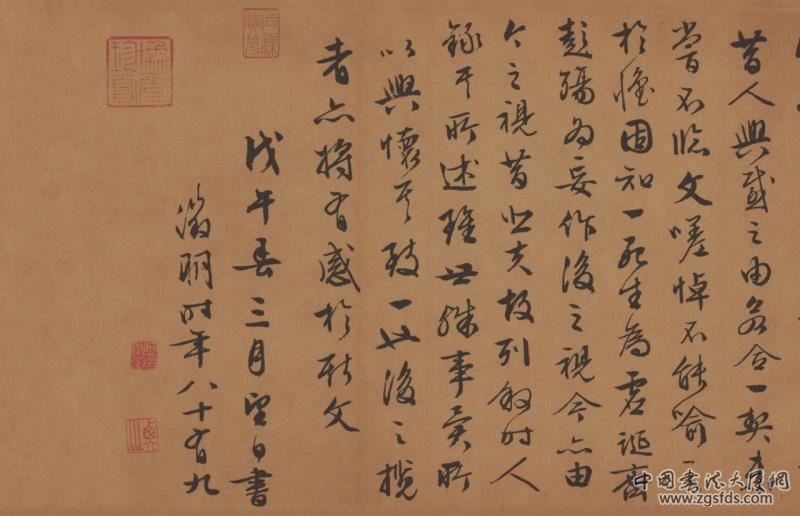 昔人興感之由若合一契未
嘗不臨文嗟悼不能喻之
於懷固知一死生為虛誕齊
彭殤為妄作後之視今亦由
今之視昔悲夫故列敘時人
錄其所述雖世殊事異所
以興懷其致一也後之攬
者亦將有感於斯文
戊午春三月望日書
徵明時年八十有九
中國書法大廈網
www.zgsfds.com